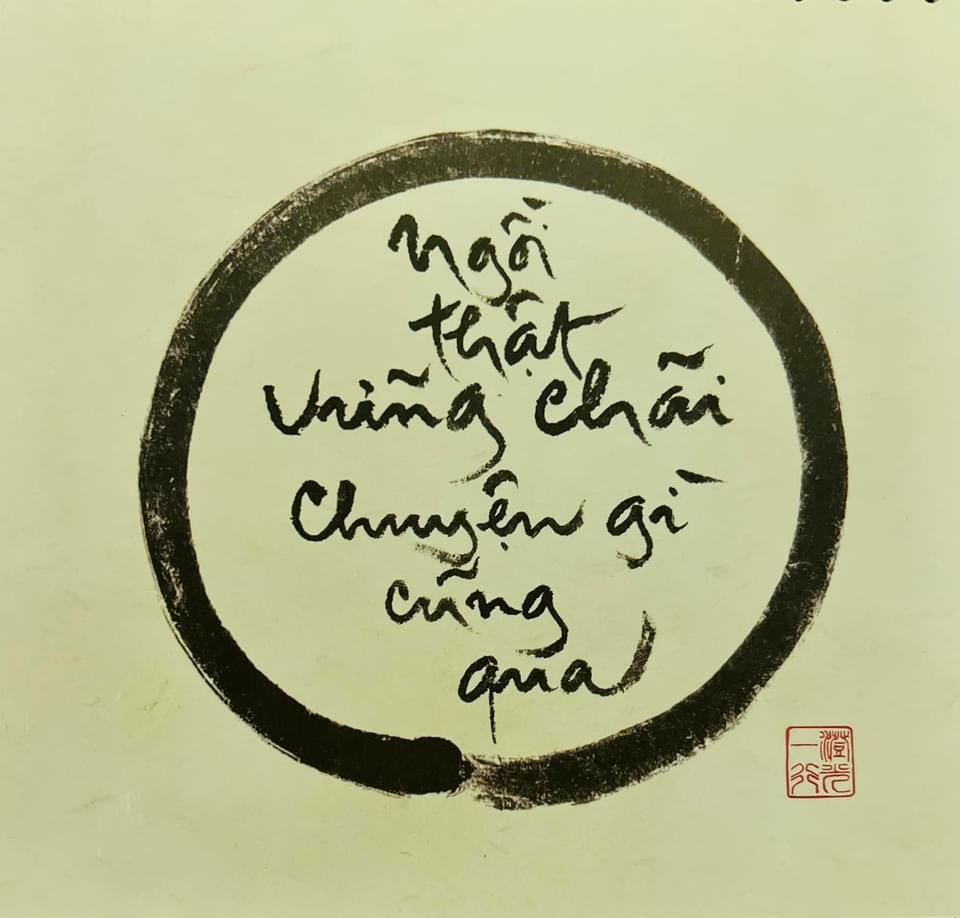 Ngồi
thật
Vững chãi
Chuyện gì
cũng
qua
澄光
一行